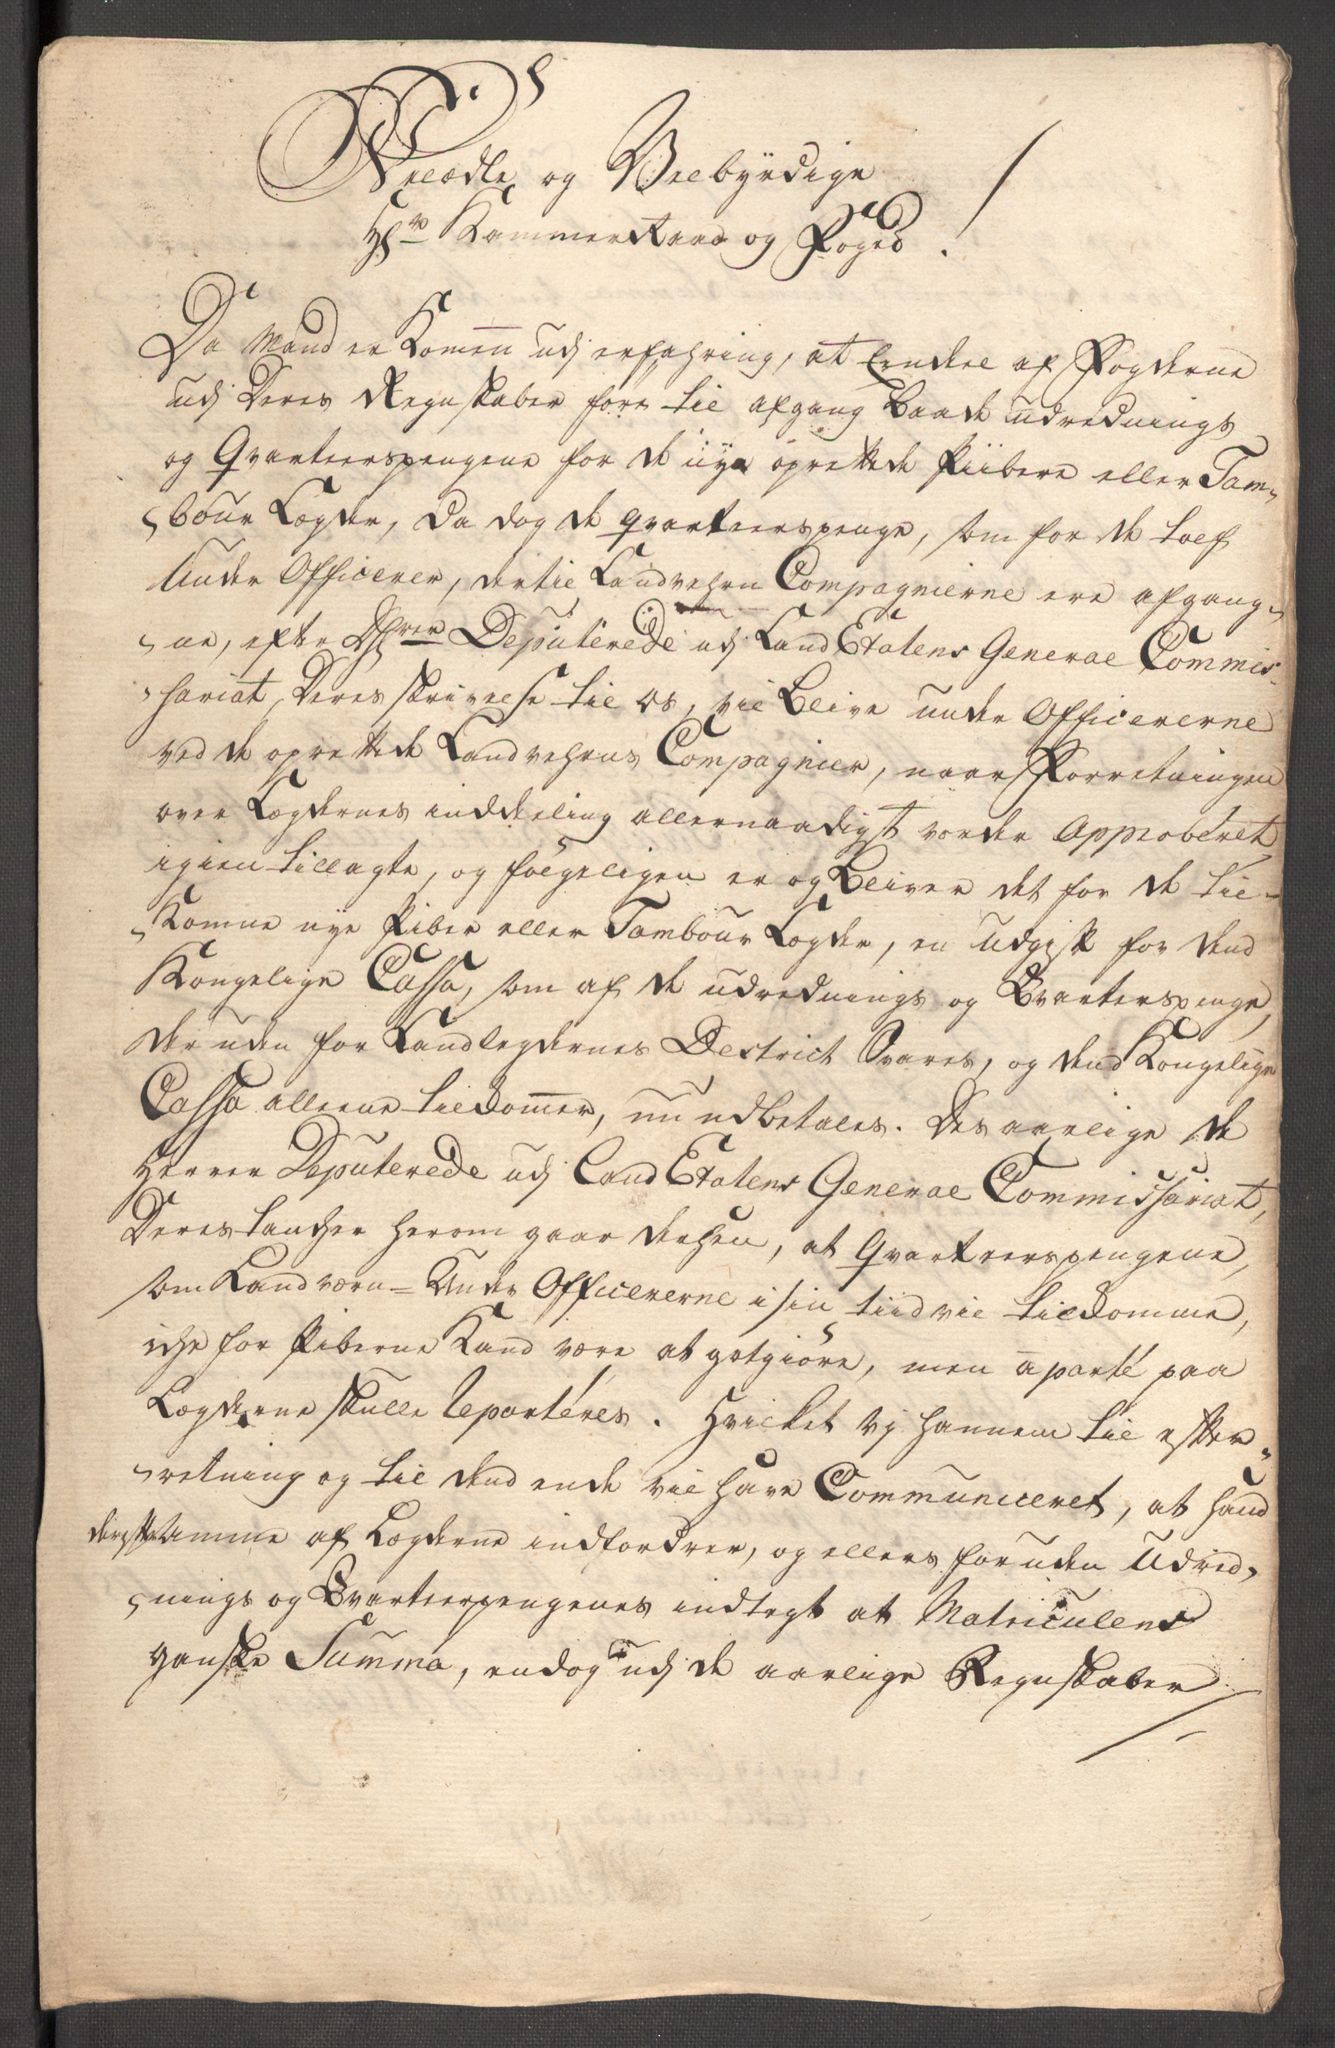 Velædle og Velbÿrdige
Hr Kammerraad og Foged.
Da Mand er Kommen udj erfahring, at Eendeel af Fogderne
udj Deres Regnskaber føre til afgang baade udrednings
og Qvarteerspengene for de nye oprettede Piibere eller Tam-
bour Lægder, da dog de qvarteerspenge, som for de toef
Under Officerer, der til Landvehrn Compagnierne ere afgang-
ne, efter Hrer Deputerede udj Land Etatens General Commis-
sariat, Deres skrivelse til os, vil blive under Officererne
ved de oprettede Landvehrns Compagnier, naar Forretningen
over Lægdernes inddeling allernaadigst vorder Approberet
igien tillagte, og følgeligen er og bliver det for de til-
komne nye Piber eller Tambour Lægder, en udgift for dend
Kongelige Cassa, som af de udrednings og Qvarteerspenge,
der uden for Landlegdernes District Svares, og dend Kongelige
Cassa alleene tilkommer, nu udbetales. Des aarlige de
Herrer Deputerede udj Land Etatens General Commissariat,
Deres tancker herom gaar derhen, at Qvarteerspengene,
som Landværn-Under Officererne i sin tiid vil tilkomme,
iche for Piberne kand være at gotgiøre, men aparté paa
Lægderne skulle reparteres. Hvilket vj hannem til efter-
retning og til dend ende vil have Communiceret, at hand
samme af Lægderne indfordrer, og ellers foruden Udred-
nings og Qvarteerpengenes indtegt at Matriculens
ganske Summa, endog udj de aarlige Regnskaber